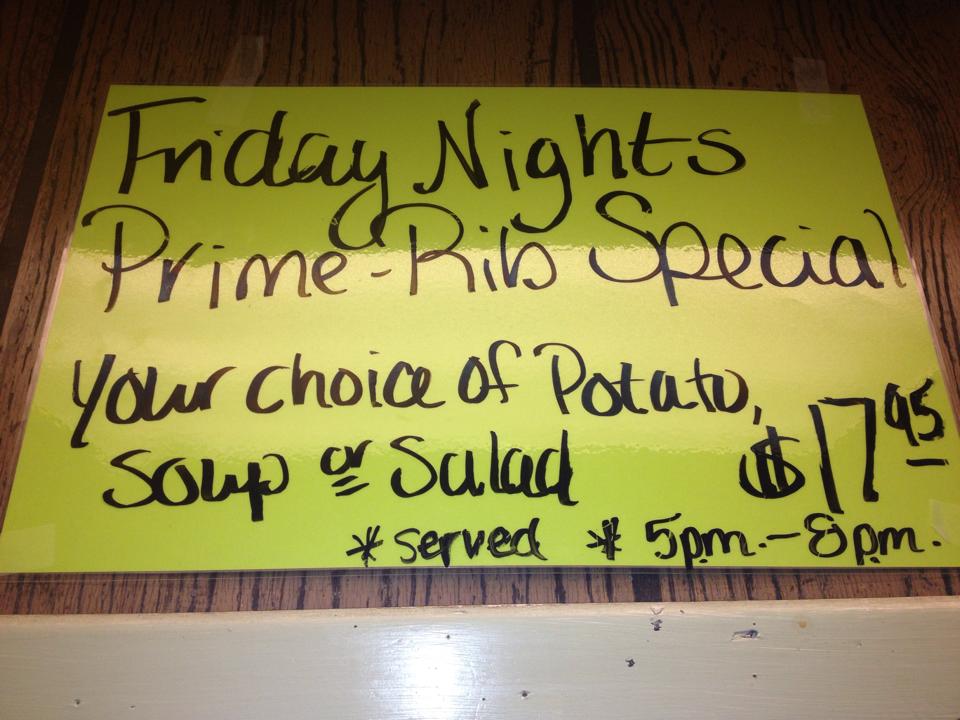 Friday Nights
Prime-Rib Special
Your choice of Potato,
Soup or Salad $17.95
* served * 5pm.-8pm.